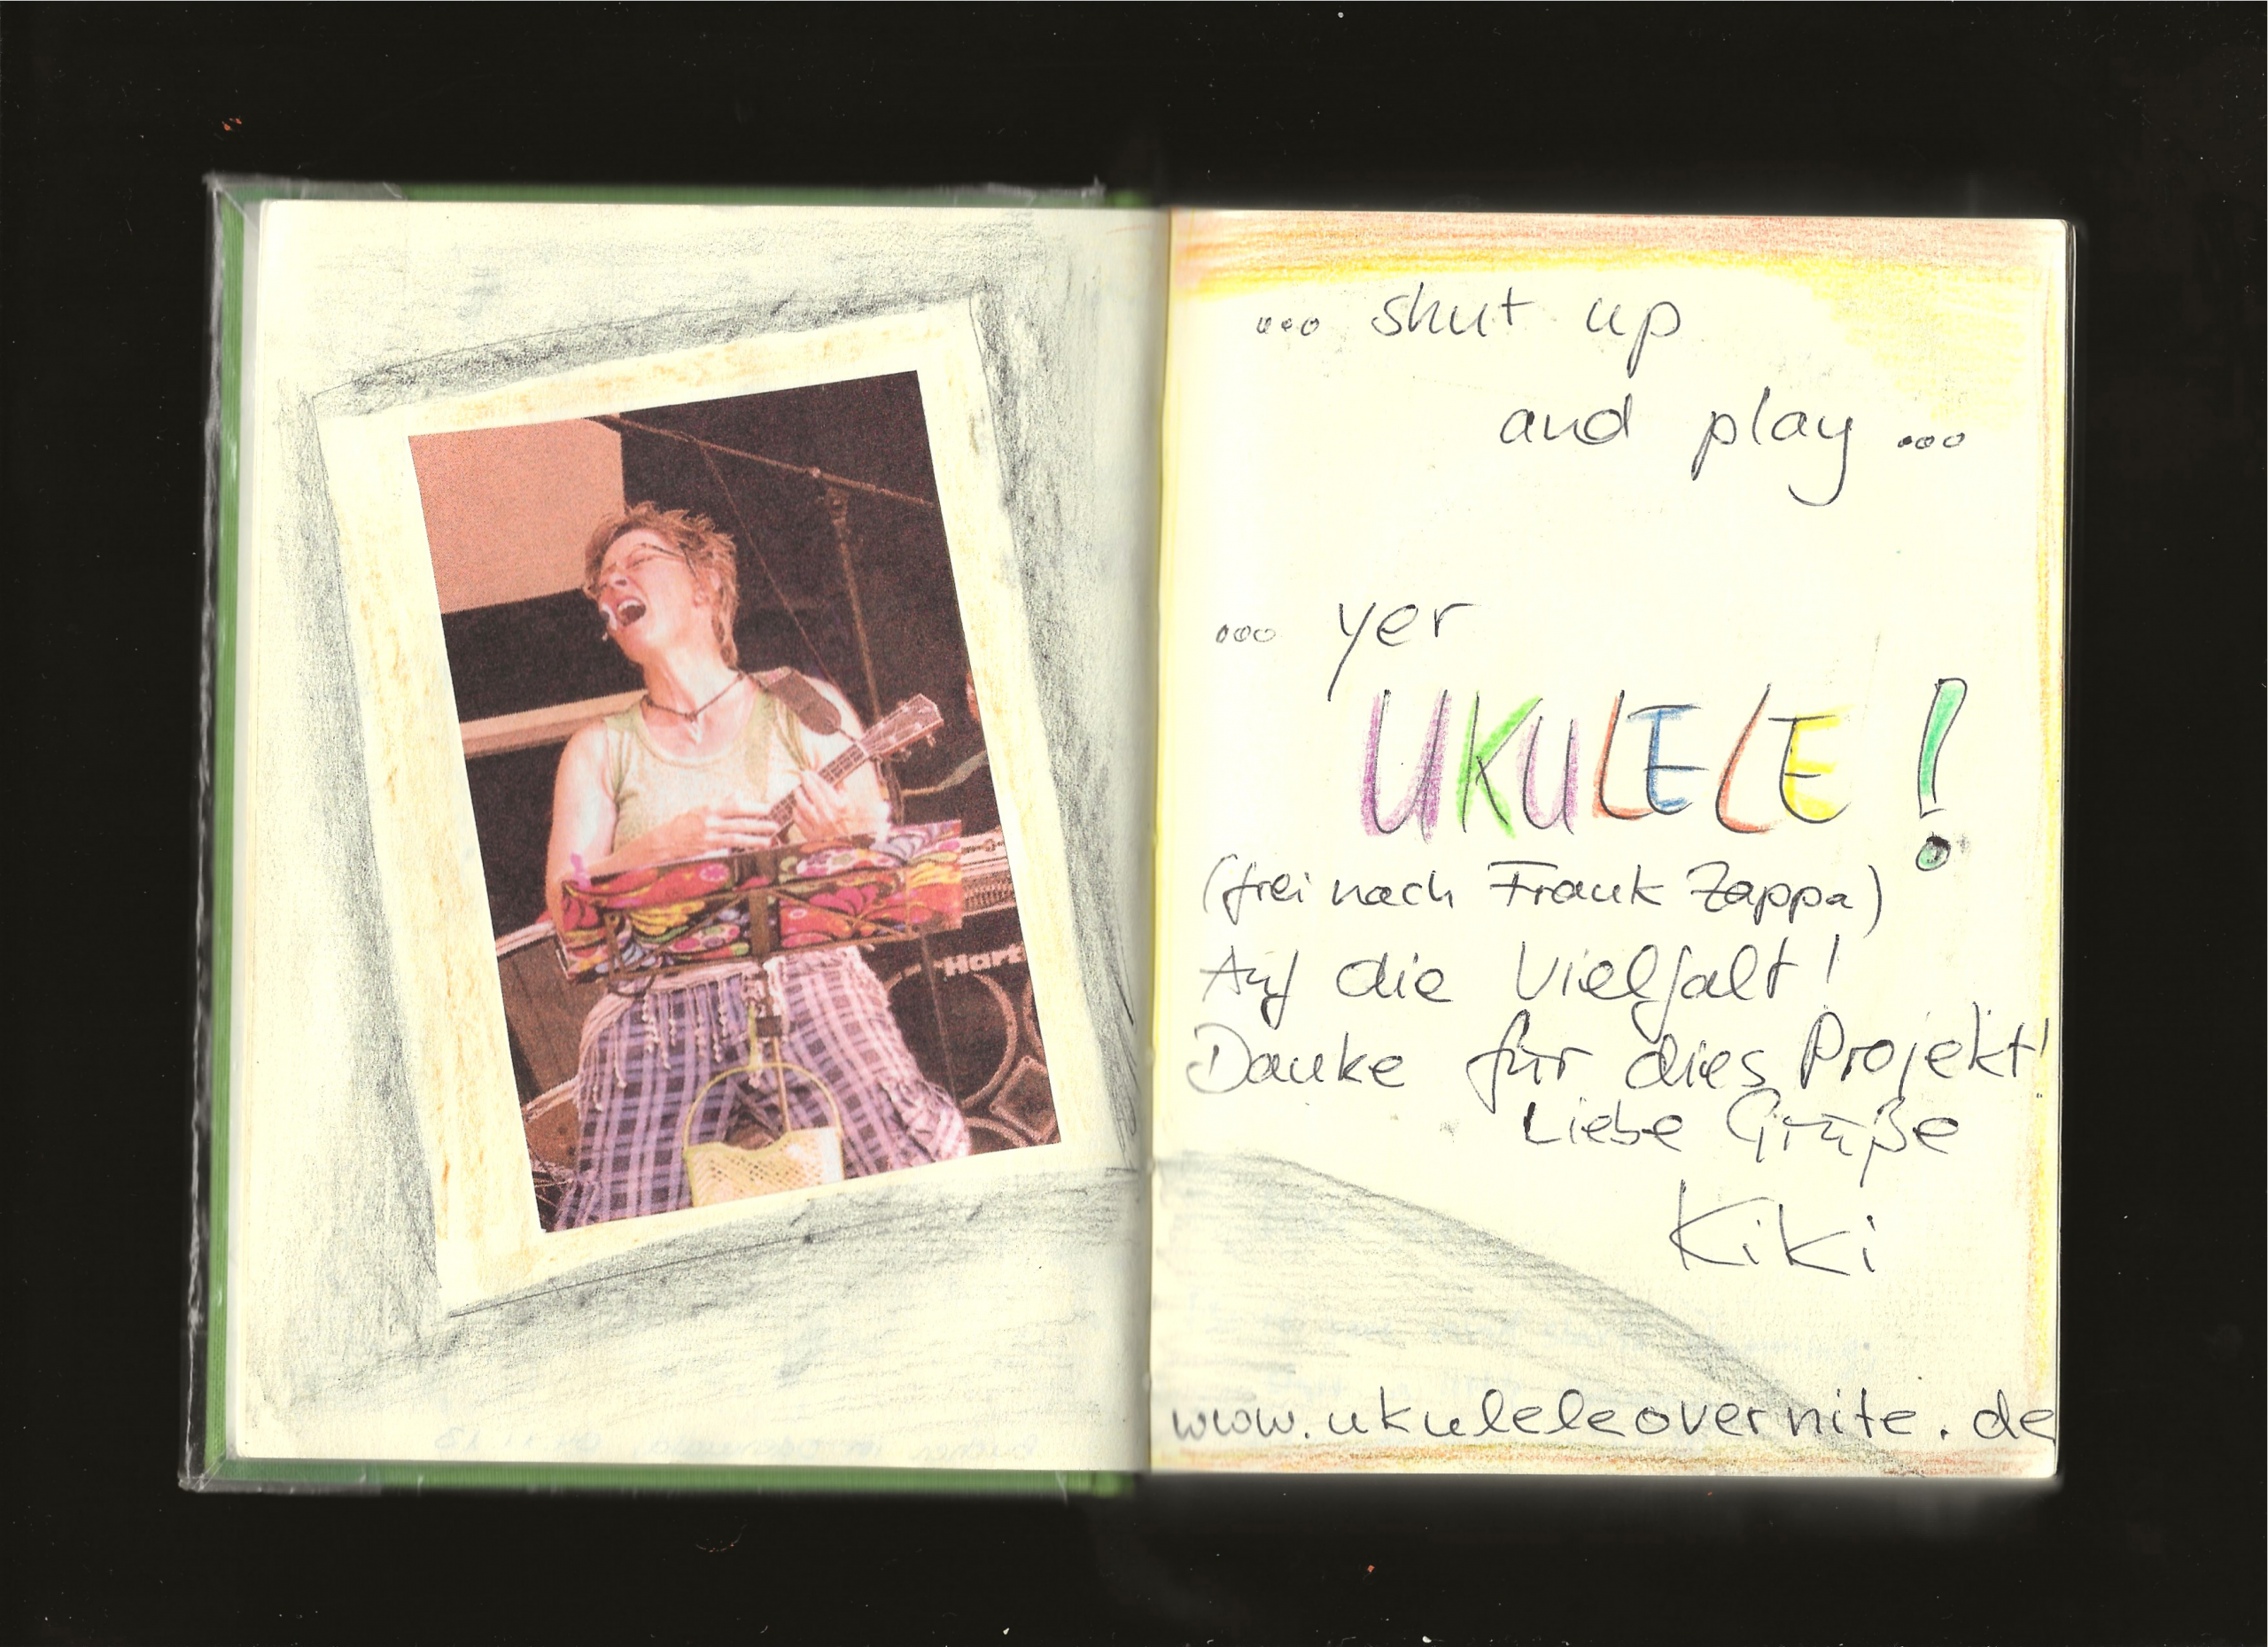 ... shut up
and play ...
... yer
UKULELE!
(frei nach Frank Zappa)
Auf die Vielfalt!
Danke für dies Projekt!
Liebe Grüße
Kiki
www.ukuleleovernite.de
Hart